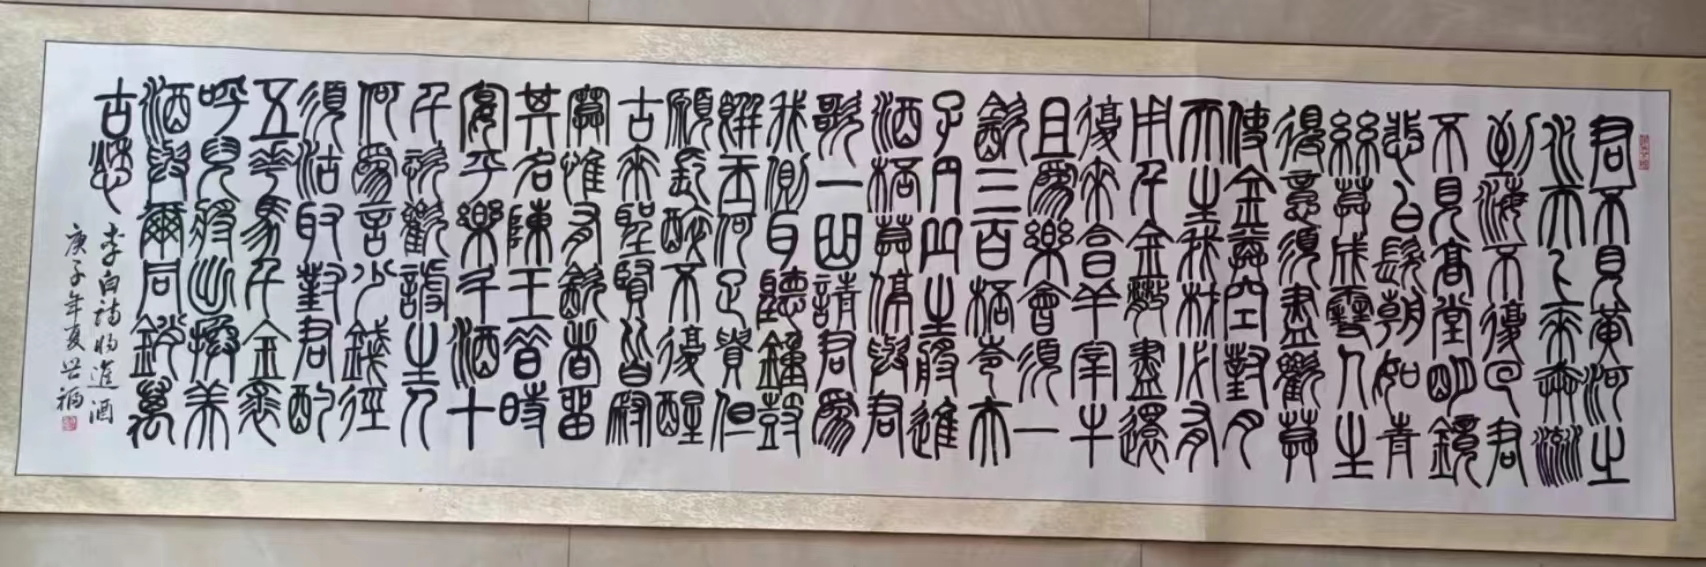 君不見黃河之
水天上來奔流
到海不復回君
不見高堂明鏡
悲白髮朝如青
絲莫成雪人生
得意須盡歡莫
使金尊空對月
天生我材必有
用千金散盡還
復來烹羊宰牛
且為樂會須一
飲三百杯岑夫
子丹丘生將進
酒杯莫停與君
歌一曲請君為
我側耳聽鐘鼓
饌玉何足貴但
願長醉不復醒
古來聖賢皆寂
寞惟有飲者留
其名陳王昔時
宴平樂斗酒十
千恣歡謔主人
何為言少錢徑
須沽取對君酌
五花馬千金裘
呼兒將出換美
酒與爾同銷萬
古愁
李白詩將進酒
庚子年夏